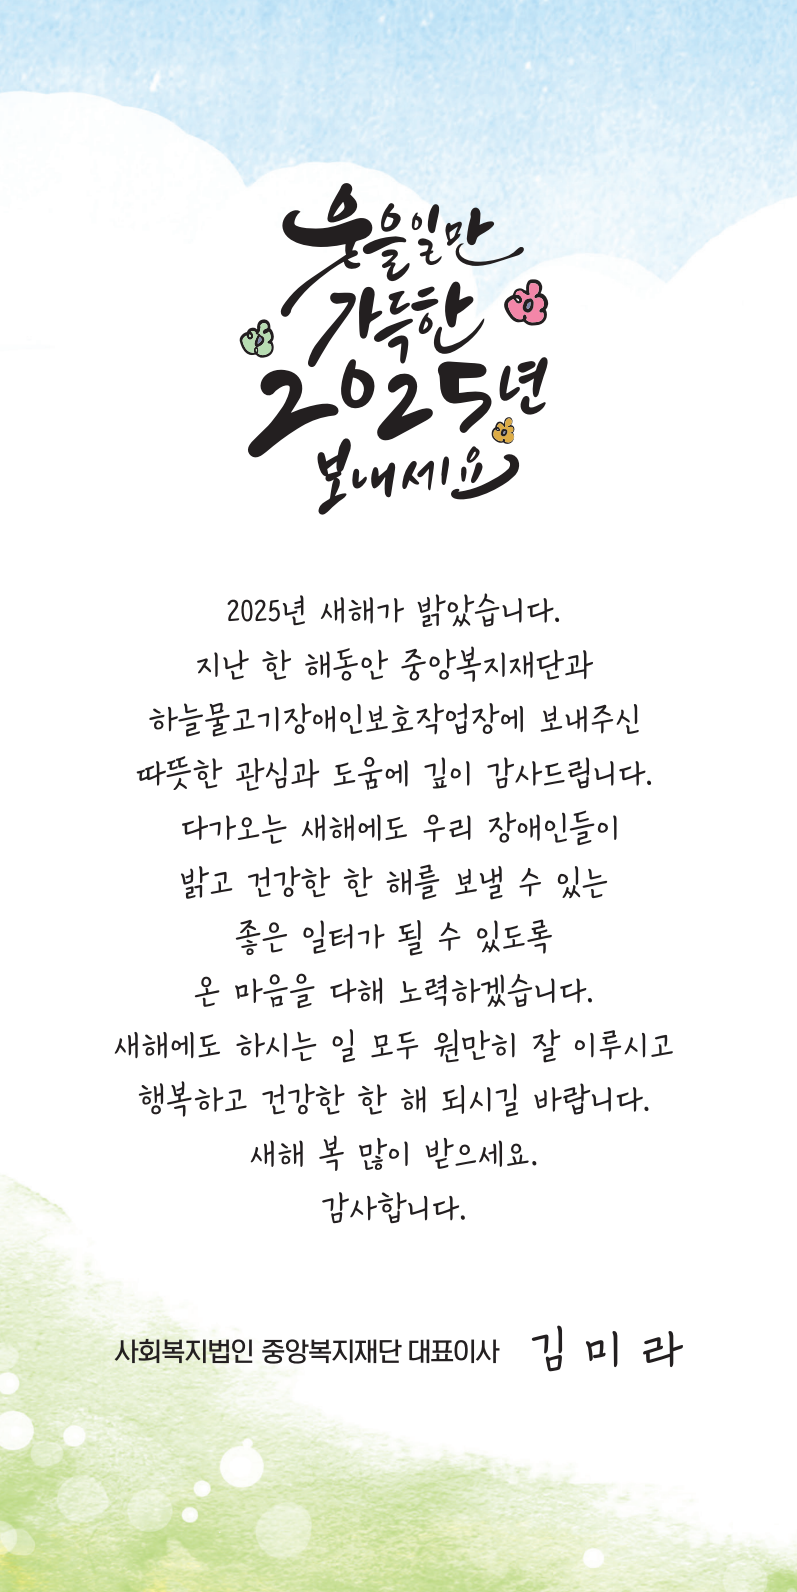 웃을일만
가득한
2025년
보내세요
2025년 새해가 밝았습니다.
지난 한 해동안 중앙복지재단과
하늘물고기장애인보호작업장에 보내주신
따뜻한 관심과 도움에 깊이 감사드립니다.
다가오는 새해에도 우리 장애인들이
밝고 건강한 한 해를 보낼 수 있는
좋은 일터가 될 수 있도록
온 마음을 다해 노력하겠습니다.
새해에도 하시는 일 모두 원만히 잘 이루시고
행복하고 건강한 한 해 되시길 바랍니다.
새해 복 많이 받으세요.
감사합니다.
사회복지법인 중앙복지재단 대표이사 김미라